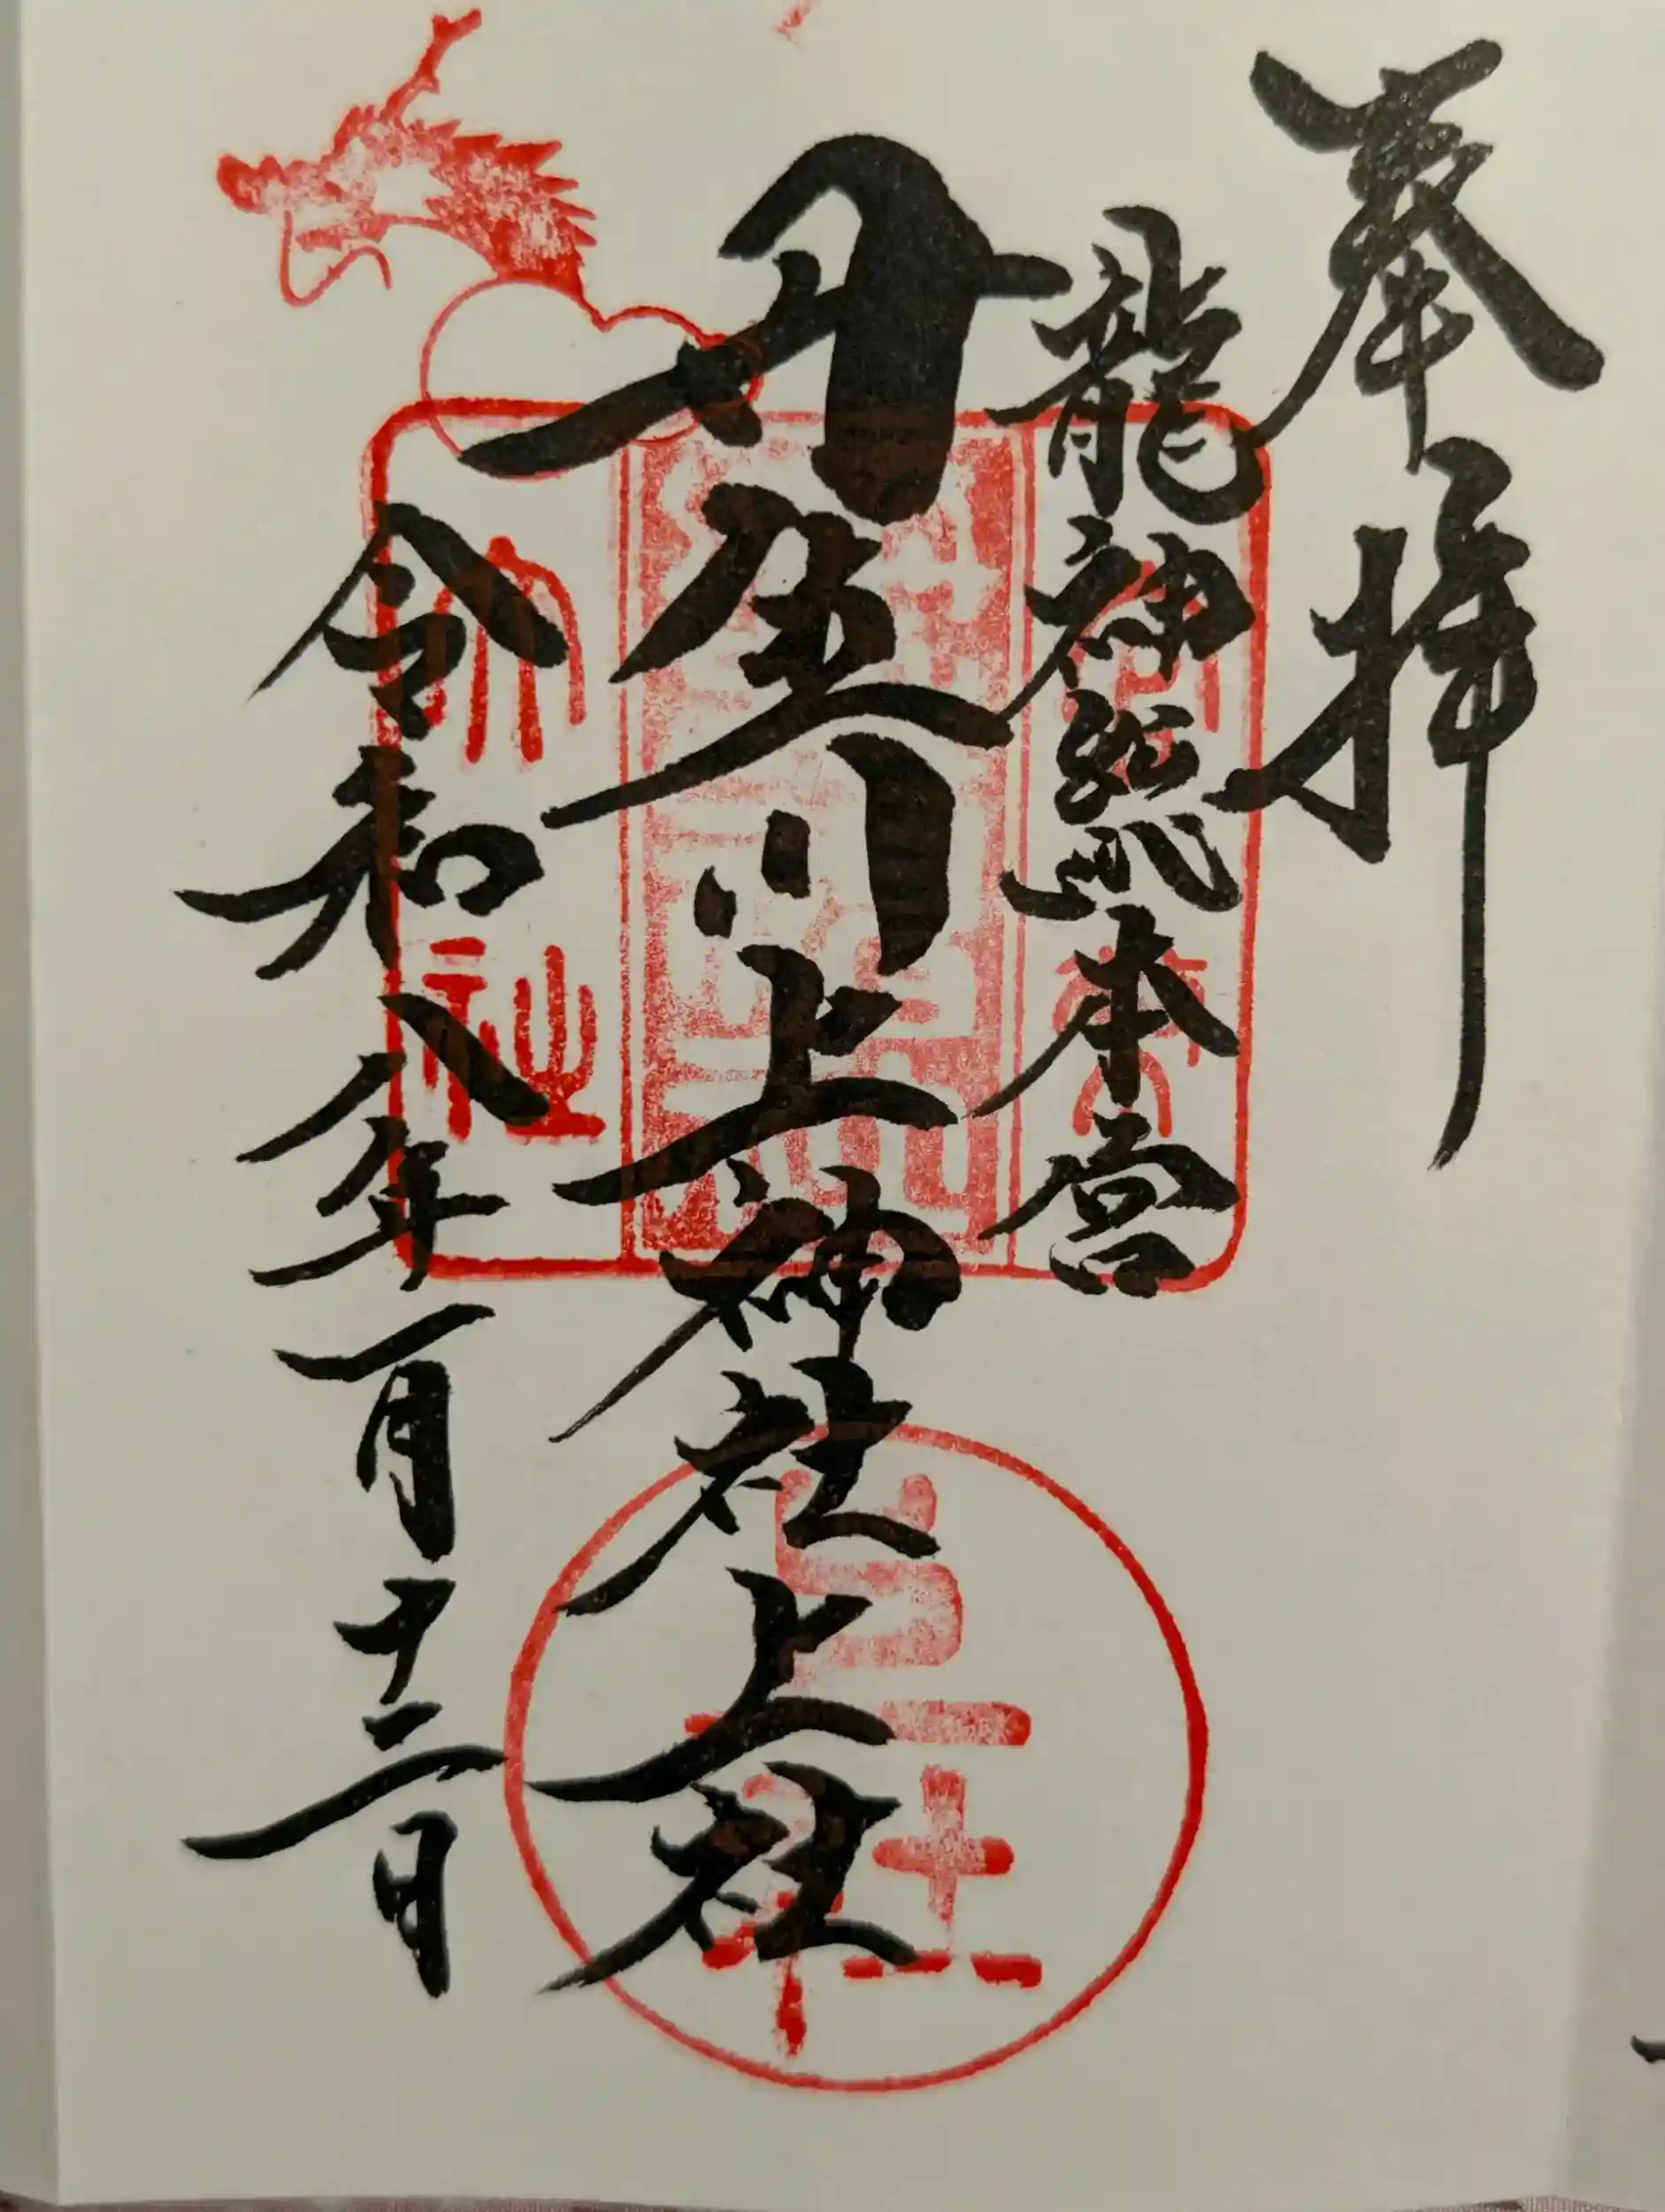 奉拝
龍神総本宮
丹生川上神社上社
令和八年一月十二日
上社